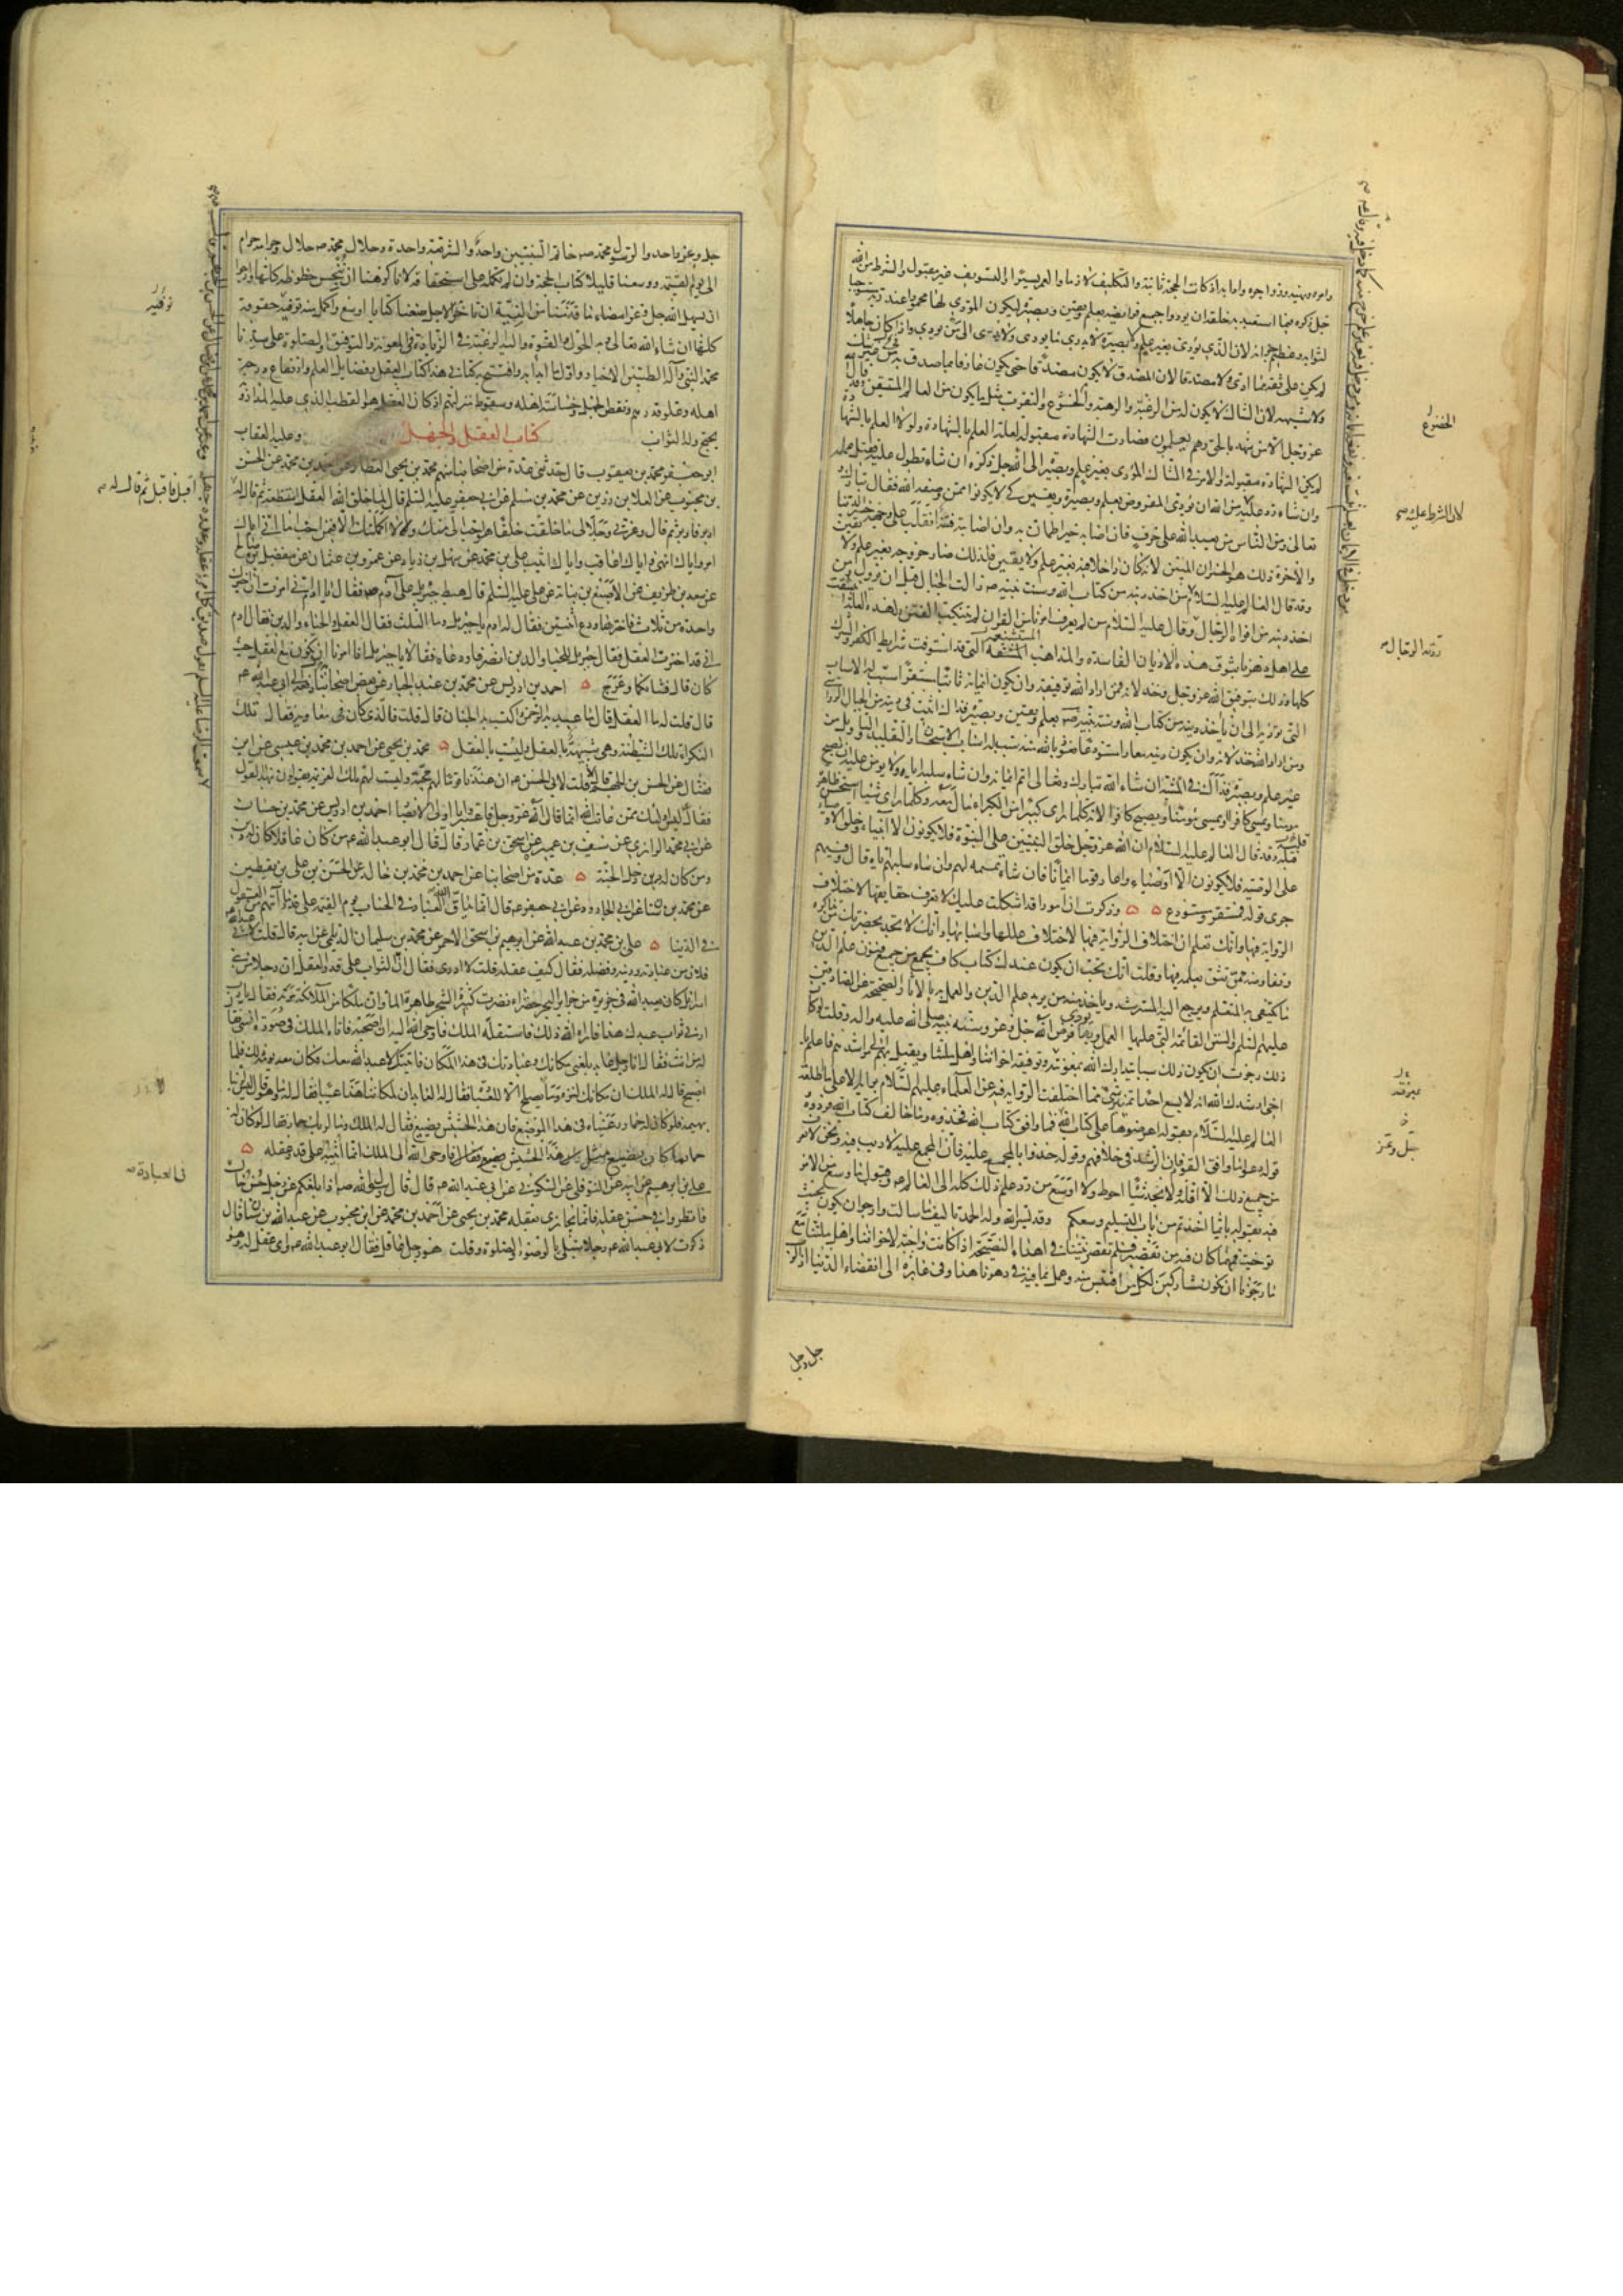 وامره ونهيه وزواجره وآدابه اذ كانت الحجة ثابتة والتكليف لازما والعمر يسيرا والتسويف غير مقبول والشرط من الله
جل ذكره فيما استعبد به خلقه ان يودوا جميع فرايضه بعلم ويقين وبصيرة ليكون المودي لها محمودا عند ربه مستوجبا
لثوابه وعظيم جزائه لان الذي يودي بغير علم ولا بصيرة لا يدري ما يودي ولا يدري الى من يودي واذا كان جاهلا
لم يكن على ثقة مما ادى ولا مصدقا لان المصدق لا يكون مصدقا حتى يكون عارفا بما صدق به من غير شك
ولا شبهة لان الشاك لا يكون له من الرغبة والرهبة والخضوع والتقرب مثل ما يكون من العالم المستيقن وقد قال الله
عز وجل الا من شهد بالحق وهم يعلمون فصارت الشهادة مقبولة لعلة العلم بالشهادة ولولا العلم بالشهادة
لم يكن الشهادة مقبولة والامر في الشاك المودى بغير علم وبصيرة الى الله جل ذكره ان شاء تطول عليه فقبل عمله
وان شاء رد عليه من الله ان يودي المفروض بعلم وبصيرة ويقين كي لا يكونوا ممن وصفه الله فقال تبارك و
تعالى ومن الناس من يعبد الله على حرف فان اصابه خير اطمان به وان اصابته فتنة انقلب على وجهه خسر الدنيا
والآخرة ذلك هو الخسران المبين لانه كان داخلا فيه بغير علم ولا يقين فلذلك صار خروجه بغير علم ولا يقين
وقد قال العالم عليه السلام من اخذ دينه من كتاب الله وسنة نبيه ص زالت الجبال قبل ان يزول ومن
اخذ دينه من افواه الرجال وقال عليه السلام من لم يعرف امرنا من القران لم يتنكب الفتن ولهذه العلة انبثقت
على اهل دهرنا بثوق هذه الاديان الفاسدة والمذاهب المستشنعة التي قد استوفت شرايط الكفر والشرك
كلها وذلك بتوفيق الله عز وجل وخذلانه فمن اراد الله توفيقه وان يكون ايمانه ثابتا مستقرا سبب له الاسباب
التي توديه الى ان ياخذ دينه من كتاب الله وسنة نبيه ص بعلم ويقين وبصيرة فذاك اثبت في دينه من الجبال الرواسي
ومن اراد الله خذلانه وان يكون دينه معارا مستودعا نعوذ بالله منه سبب له اسباب الاستحسان والتقليد والتاويل من
غير علم وبصيرة فذاك في المشية ان شاء الله تبارك وتعالى اتم ايمانه وان شاء سلبه اياه ولا يومن عليه ان يصبح
مومنا ويمسي كافرا او يمسي مومنا ويصبح كافرا لانه كلما راى كبيرا من الكبراء مال معه وكلما راى شيئا استحسن ظاهره
قبله وقد قال العالم عليه السلام ان الله عز وجل خلق النبيين على النبوة فلا يكونون الا انبياء وخلق الاوصياء
على الوصية فلا يكونون الا اوصياء واعار قوما ايمانا فان شاء تممه لهم وان شاء سلبهم اياه قال وفيهم
جرى قوله فمستقر ومستودع وذكرت ان امورا قد اشكلت عليك لا تعرف حقايقها لاختلاف
الرواية فيها وانك تعلم ان اختلاف الرواية فيها لاختلاف عللها واسبابها وانك لا تجد بحضرتك من تذاكره
وتفاوضه ممن تثق بعلمه فيها وقلت انك تحب ان يكون عندك كتاب كاف يجمع من جميع فنون علم الدين
ما يكتفي به المتعلم ويرجع اليه المسترشد وياخذ منه من يريد علم الدين والعمل به بالآثار الصحيحة عن الصادقين
عليهم السلم والسنن القائمة التي عليها العمل وبها يودى فرض الله جل وعز وسنة نبيه صلى الله عليه وآله وقلت لو كان
ذلك رجوت ان يكون ذلك سببا يتدارك الله بمعونته وتوفيقه اخواننا واهل ملتنا ويقبل بهم الى مراشدهم فاعلم يا
اخي ارشدك الله انه لا يسع احدا تمييز شيء مما اختلفت الرواية فيه عن العلماء عليهم السلام برايه الا على ما اطلقه
العالم عليه السلام بقوله اعرضوها على كتاب الله فما وافق كتاب الله فخذوه وما خالف كتاب الله فردوه
قوله دعوا ما وافق القوم فان الرشد في خلافهم وقوله خذوا بالمجمع عليه فان المجمع عليه لا ريب فيه ونحن لا نعرف
من جميع ذلك الا اقله ولا نجد شيئا احوط ولا اوسع من رد علم ذلك كله الى العالم وقبول ما وسع من الامر
فيه بقوله بايما اخذتم من باب التسليم وسعكم وقد يسر الله وله الحمد تاليف ما سالت وارجو ان يكون بحيث
توخيت فمهما كان فيه من تقصير فلم تقصر نيتنا في اهداء النصيحة اذ كانت واجبة لاخواننا واهل ملتنا مع
ما رجونا ان نكون مشاركين لكل من اقتبس منه وعمل بما فيه في دهرنا هذا وفي غابره الى انقضاء الدنيا اذ الرب
الخضوع
لان الشرط عليه
جل وعز
جل وجل
جل وعز واحد والرسول محمد ص خاتم النبيين واحد والشريعة واحدة وحلال محمد ص حلال وحرامه حرام
الى يوم القيمة ووسعنا قليلا كتاب الحجة وان لم نكمله على استحقاقه لانا كرهنا ان نبخس حظوظه كلها وارجوا
ان يسهل الله جل وعز امضاء ما قدمنا من النية ان تاخر الاجل صنفنا كتابا اوسع واكمل منه نوفيه حقوقه
كلها ان شاء الله تعالى وبه الحول والقوة واليه الرغبة في الزيادة في المعونة والتوفيق والصلوة على سيدنا
محمد النبي وآله الطيبين الاخيار واول ما ابدا به وافتتح به كتابي هذا كتاب العقل وفضايل العلم وارتفاع درجة
اهله وعلو قدرهم ونقص الجهل وخساسة اهله وسقوط منزلتهم اذ كان العقل هو القطب الذي عليه المدار وبه
يحتج وله الثواب وعليه العقاب
كتاب العقل والجهل
ابو جعفر محمد بن يعقوب قال حدثني عدة من اصحابنا منهم محمد بن يحيى العطار عن احمد بن محمد عن الحسن
بن محبوب عن العلا بن رزين عن محمد بن مسلم عن ابي جعفر عليه السلم قال لما خلق الله العقل استنطقه ثم قال له
ادبر فادبر ثم قال وعزتي وجلالي ما خلقت خلقا هو احب الي منك ولا اكملتك الا فيمن احب اما اني اياك
امر واياك انهى واياك اعاقب واياك اثيب علي بن محمد عن سهل بن زياد عن عمرو بن عثمان عن مفضل بن صالح
عن سعد بن طريف عن الاصبغ بن نباتة عن علي عليه السلم قال هبط جبرئيل على آدم ص فقال يا ادم اني امرت ان اخيرك
واحدة من ثلاث فاخترها ودع اثنتين فقال له ادم يا جبرئيل وما الثلث فقال العقل والحياء والدين فقال ادم
اني قد اخترت العقل فقال جبرئيل للحيا والدين انصرفا ودعاه فقالا يا جبرئيل انا امرنا ان نكون مع العقل حيث
كان قال فشانكما وعرج احمد بن ادريس عن محمد بن عبد الجبار عن بعض اصحابنا رفعه الى ابي عبد الله ع
قال قلت له ما العقل قال ما عبد به الرحمن واكتسب به الجنان قال قلت فالذي كان في معاوية فقال تلك
النكراء تلك الشيطنة وهي شبيهة بالعقل وليست بالعقل محمد بن يحيى عن احمد بن محمد بن عيسى عن ابن
فضال عن الحسن بن الجهم قال قلت لابي الحسن ع ان عندنا قوما لهم محبة وليست لهم تلك العزيمة يقولون بهذا القول
فقال ليس اولئك ممن عاتب الله انما قال الله عز وجل فاعتبروا يا اولي الابصار احمد بن ادريس عن محمد بن حسان
عن ابي محمد الرازي عن سيف بن عميرة عن اسحق بن عمار قال قال ابو عبد الله ع من كان عاقلا كان له دين
ومن كان له دين دخل الجنة عدة من اصحابنا عن احمد بن محمد بن خالد عن الحسن بن علي بن يقطين
عن محمد بن سنان عن ابي الجارود عن ابي جعفر ع قال انما يداق الله العباد في الحساب يوم القيمة على قدر ما آتاهم من العقول
في الدنيا علي بن محمد بن عبد الله عن ابرهيم بن اسحق الاحمر عن محمد بن سليمان الديلمي عن ابيه قال قلت لابي عبد الله ع
فلان من عبادته ودينه وفضله فقال كيف عقله قلت لا ادري فقال ان الثواب على قدر العقل ان رجلا من بني
اسرائيل كان يعبد الله في جزيرة من جزاير البحر خضراء نضرة كثيرة الشجر ظاهرة الماء وان ملكا من الملائكة مر به فقال يا رب
ارني ثواب عبدك هذا فاراه الله ذلك فاستقله الملك فاوحى الله اليه ان اصحبه فاتاه الملك في صورة انسي فقال
له من انت فقال انا رجل عابد بلغني مكانك وعبادتك في هذا المكان فاتيتك لاعبد الله معك فكان معه يومه ذلك فلما
اصبح قال له الملك ان مكانك لنزه وما يصلح الا للعبادة فقال له العابد ان لمكاننا هذا عيبا فقال له وما هو قال ليس لربنا
بهيمة فلو كان له حمار رعيناه في هذا الموضع فان هذا الحشيش يضيع فقال له الملك وما لربك حمار فقال لو كان له
حمار ما كان يضيع مثل هذا الحشيش فاوحى الله الى الملك انما اثيبه على قدر عقله
علي بن ابرهيم عن ابيه عن النوفلي عن السكوني عن ابي عبد الله ع قال قال رسول الله ص اذا بلغكم عن رجل حسن حال
فانظروا في حسن عقله فانما يجازى بعقله محمد بن يحيى عن احمد بن محمد عن ابن محبوب عن عبد الله بن سنان قال
ذكرت لابي عبد الله ع رجلا مبتلى بالوضوء والصلوة وقلت هو رجل عاقل فقال ابو عبد الله ع واي عقل له وهو
توفيه
اقبل فاقبل ثم قال له
في العبادة